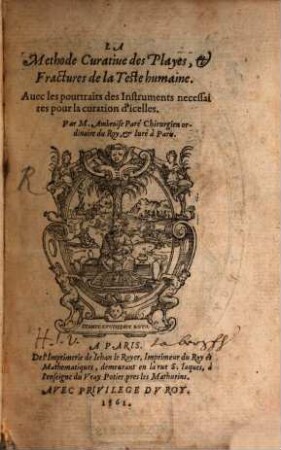 LA
Methode Curatiue des Playes, &
Fractures de la Teste humaine.
Auec les pourtraits des Instruments necessai
res pour la curation d'icelles.
Par M. Ambroise Paré Chirurgien or-
dinaire du Roy, & iuré à Paris.
R
A PARIS.
De l'Imprimerie de Iehan le Royer, Imprimeur du Roy és
Mathematiques, demeurant en la rue S. Iaques, à
l'enseigne du Vray Potier pres les Mathurins.
AVEC PRIVILEGE DV ROY.
1561.